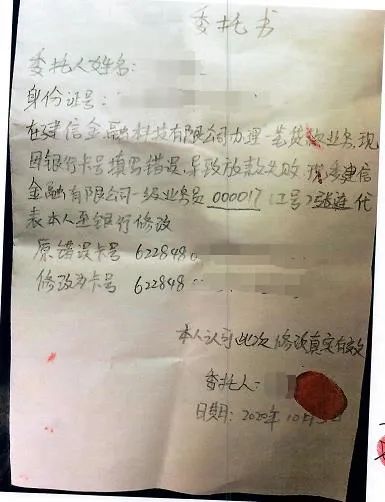 委托书
委托人姓名:
身份证号:
在建信金融科技有限公司办理一笔贷款业务,现
因银行卡号填写错误,导致放款失败.现委建信
金融有限公司一级业务员 000017 工号 张 代
表本人至银行修改
原错误卡号 622848
修改为卡号 622848
本人认可此次修改真实有效
委托人:
日期: 2020年10月